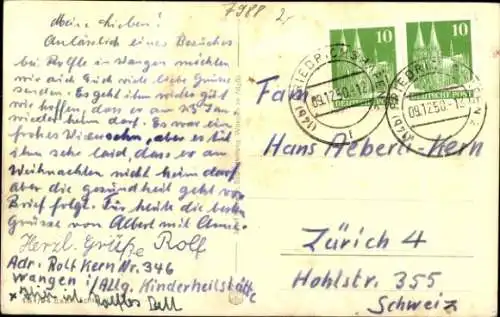 7988 2,-
Meine Lieben!
Anlässlich eines Besuches
bei Rolfle in Wangen möchten
wir auch Euch viele liebe Grüsse
senden. Es geht ihm wieder gut
wir hoffen, dass er am 23. Jan.
wieder heim darf. Es war ein
frohes Wiedersehn, aber es tut
ihm sehr leid, dass er an
Weihnachten nicht heim darf
aber die Gesundheit geht vor
Brief folgt. Für heute die besten
Grüsse von Albert mit
Herzl. Grüße Rolf
Adr. Rolf Kern Nr. 346
Wangen i/Allg. Kinderheilstätte
x Hier ist Rolfles Bett
10
10
DEUTSCHE POST
DEUTSCHE POST
(14b) FRIEDRICHSHAFEN
09.12.50.-12
(14b) FRIEDRICHSHAFEN
09.12.50.-12
Fam.
Hans Aeberli-Kern
Zürich 4
Hohlstr. 355
Schweiz